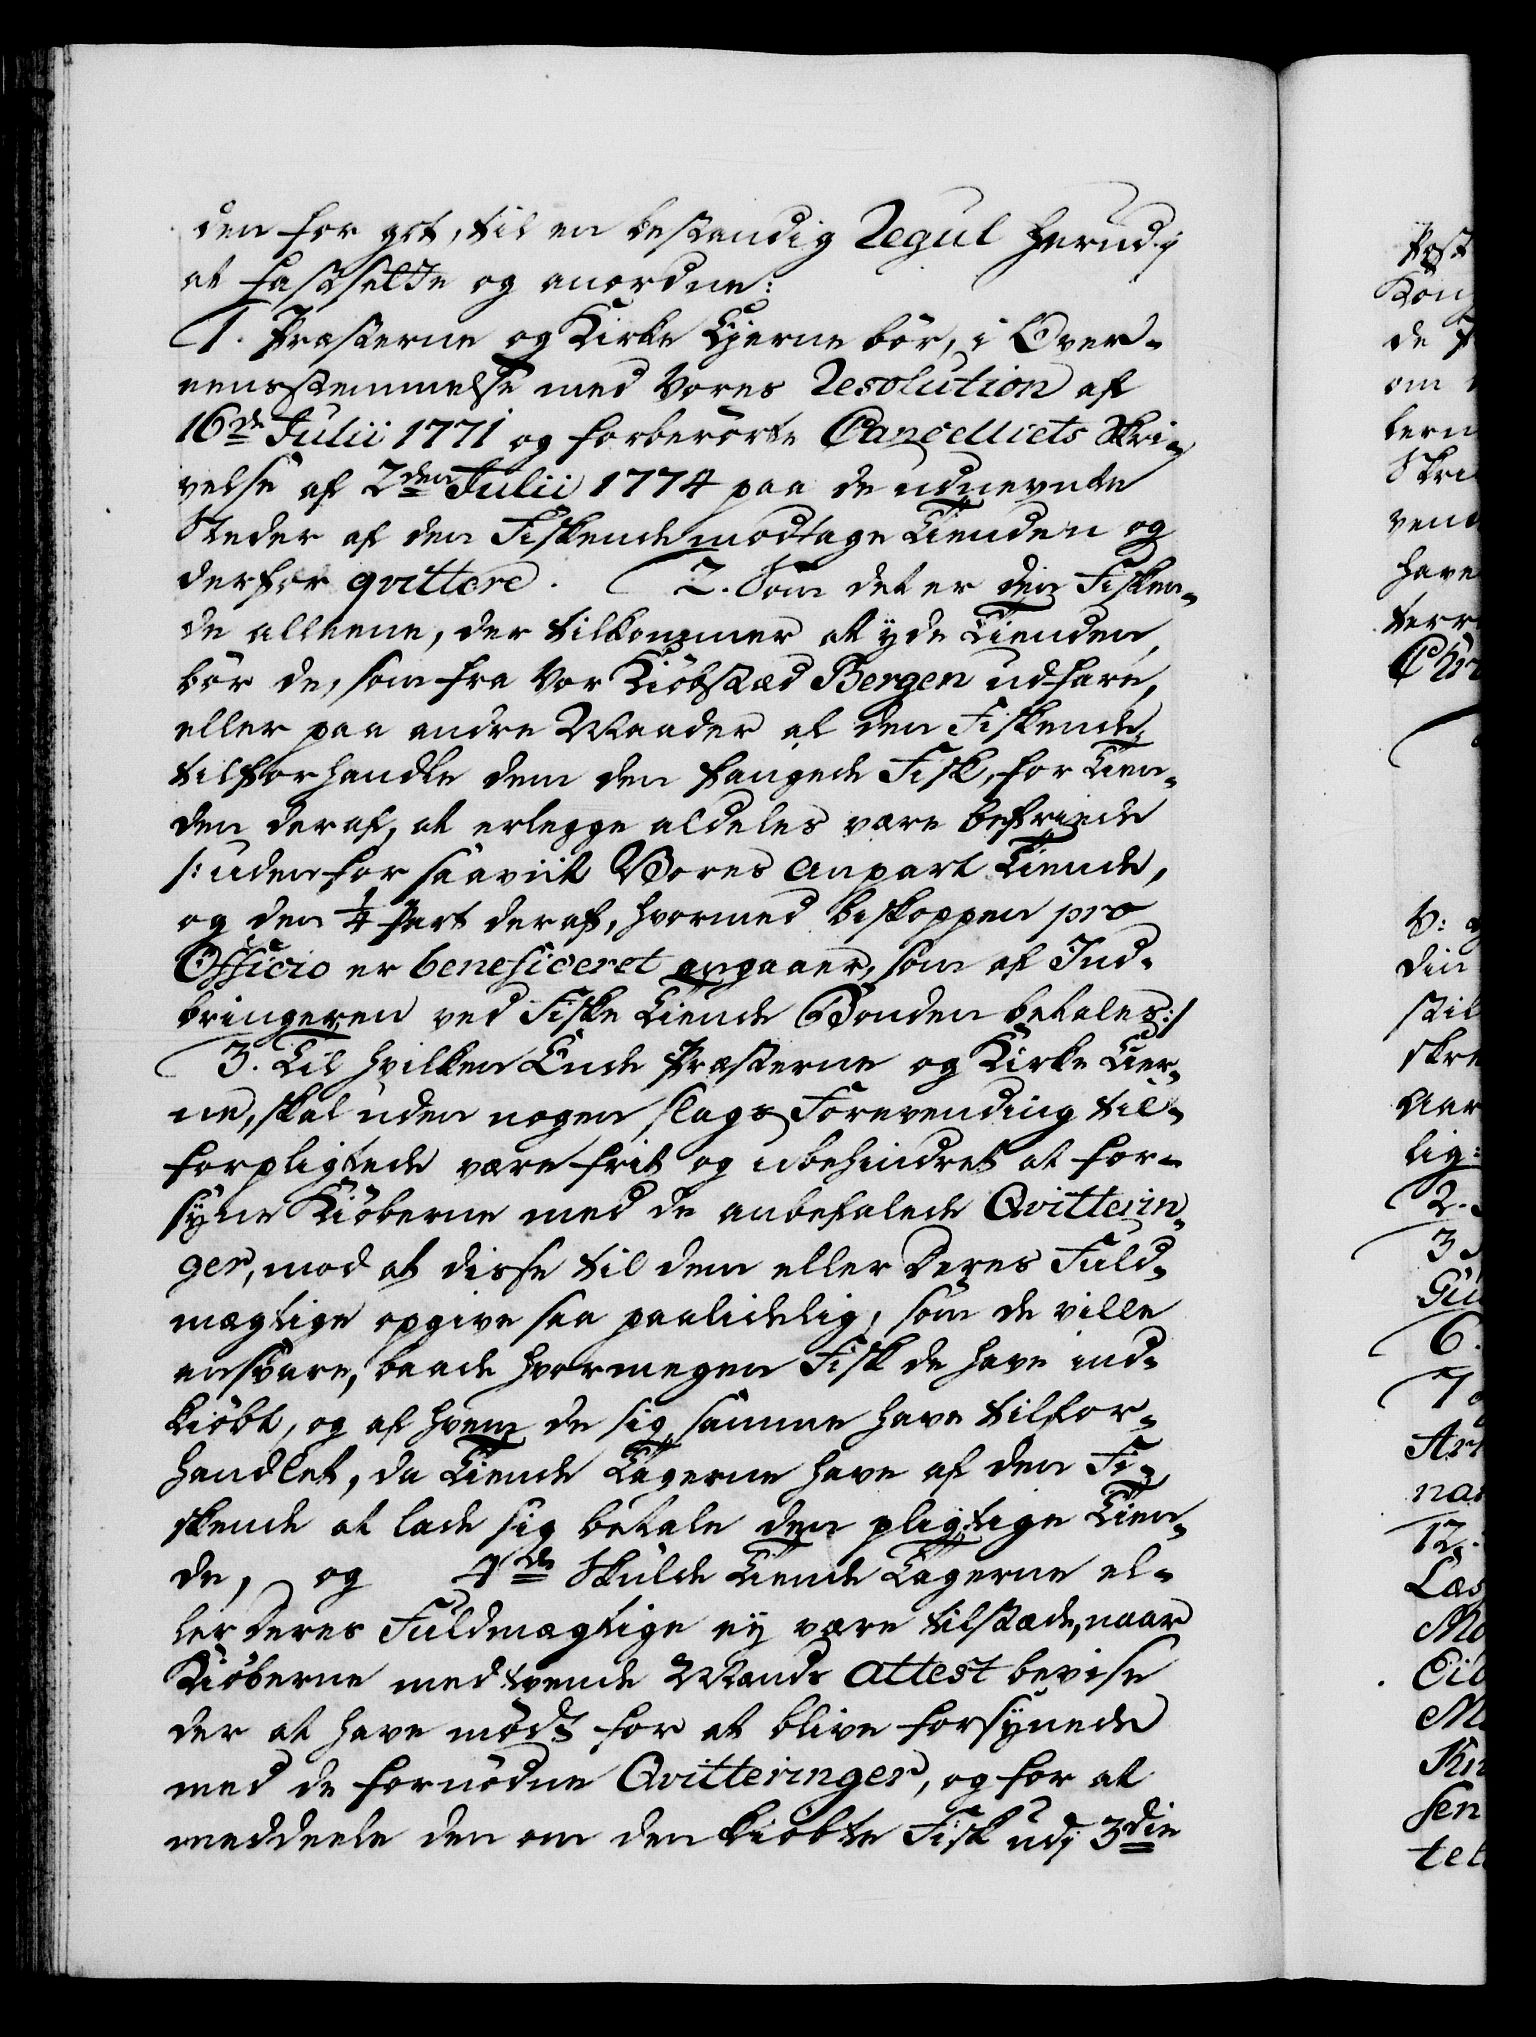 den for got, til en bestandig Regul herudj
at fastsette og anordne:
1. Præsterne og Kirke Ejerne bör, i Over-
eensstemmelse med Vores Resolution af
16de Julii 1771 og forberörte Cancelliets Skri-
velse af 2den Julii 1774 paa de udnevnte
Steder af den Fiskende modtage Tienden og
derfor qvittere. 2. Som det er den Fisken-
de alleene, der tilkommer at yde Tienden,
bör de, som fra Vor Kiöbstæd Bergen udfare,
eller paa andre Maader af den Fiskende
tilforhandle dem den fangede Fisk, for Tien-
den deraf, at erlegge aldeles være befriede
/: uden for saavit Vores anpart Tiende,
og den 1/4 Part deraf, hvormed biskoppen pro
Officio er beneficeret angaaer, som af Ind-
bringeren ved Fiske Tiende Bonden betales :/
3. Til hvilken Ende Præsterne og Kirke Eier-
ne, skal uden nogen slags Forevending til-
forpligtede være frit og ubehindret at for-
syne Kiöberne med de anbefalede Qvitterin-
ger, mod at disse til dem eller Deres Fuld-
mægtige opgive saa paalidelig, som de ville
ansvare, baade hvormegen Fisk de have ind-
kiöbt, og af hvem de sig samme have tilfor-
handlet, da Tiende Tagerne have af den Fi-
skende at lade sig betale den pligtige Tien-
de, og 4de Skulde Tiende Tagerne el-
ler deres Fuldmægtige ej være tilstæde, naar
Kiöberne med tvende Mands attest bevise
der at have mödt for at blive forsynede
med de fornödne Qvitteringer, og for at
meddeele den om den kiöbte Fisk udj 3die
Post
Kon
de P
om
bern
Skri
vend
have
terr
Chr
V:
din
stil
skre
Aar
lig:
2.
3
Gu
6.
7
Ar
nar
12.
Læs
Mo
Eid
M
Kir
sen
tet